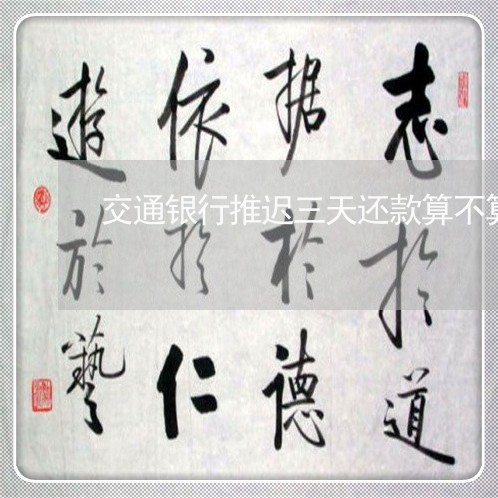 志於道
据於德
依於仁
遊於藝
交通银行推迟三天还款算不